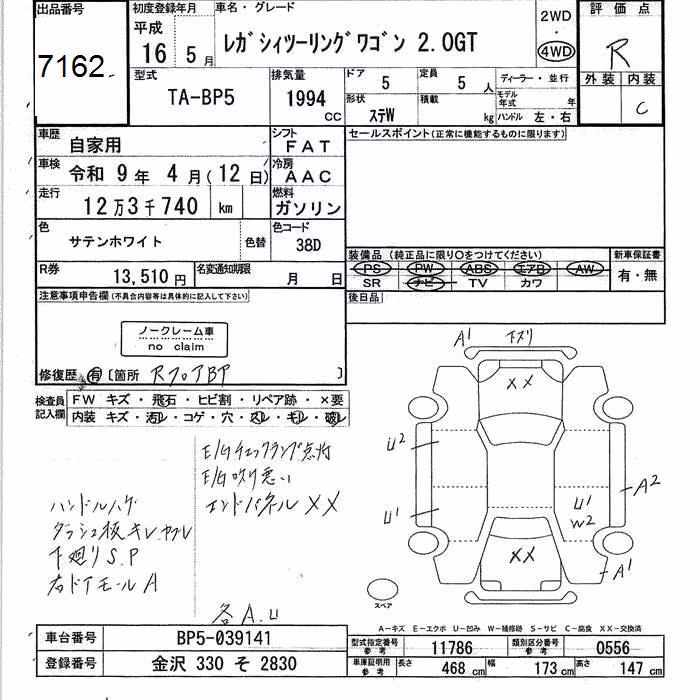 出品番号
7162
初度登録年月
平成
16 5月
車名・グレード
レガシィツーリングワゴン 2.0GT
2WD
・
4WD
評価点
R
外装 内装
C
型式
TA-BP5
排気量
1994 cc
ドア 5
定員 5人
形状 ステW
積載 kg
ディーラー・並行
モデル年式 年
ハンドル 左・右
車歴 自家用
シフト FAT
セールスポイント(正常に機能するものに限ります)
車検 令和 9年 4月(12日)
冷房 AAC
走行 12万3千740 km
燃料 ガソリン
色 サテンホワイト 色替
色コード 38D
装備品(純正品に限り○をつけてください)
PS PW ABS エアB AW
SR ナビ TV カワ
新車保証書
有・無
R券 13,510円
名変通知期限 月 日
後日品
注意事項申告欄(不具合内容等は具体的に記入して下さい)
ノークレーム車
no claim
修復歴 有 〔箇所 RフロアBP 〕
検査員記入欄
FW キズ・飛石・ヒビ割・リペア跡・×要
内装 キズ・汚レ・コゲ・穴・スレ・キレ・破レ
E/Gチェックランプ点灯
E/G吹け悪い
エンドパネルXX
ハンドルハゲ
ダッシュ板キレ、ヤブレ
下廻りS.P
右ドアモールA
各A.U
A1 下スリ
XX
U2
U1
A2
U1
W2
XX
A1
スペア
A-キズ E-エクボ U-凹み W-補修跡 S-サビ C-腐食 XX-交換済
車台番号 BP5-039141
型式指定番号 参考 11786
類別区分番号 参考 0556
登録番号 金沢 330 そ 2830
車庫証明用 参考 長さ 468 cm 幅 173 cm 高さ 147 cm